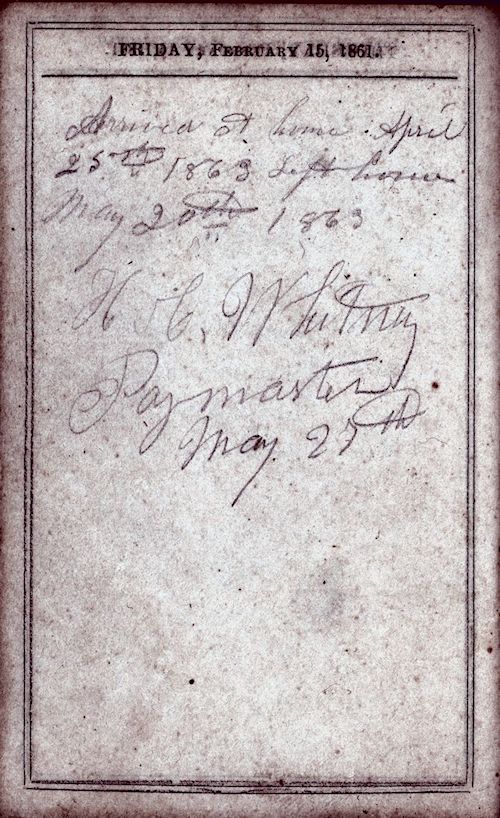 FRIDAY, FEBRUARY 15, 1861.
Arrived at home April
25th 1863 Left home
May 20th 1863
H. C. Whitney
Paymaster
May 25th